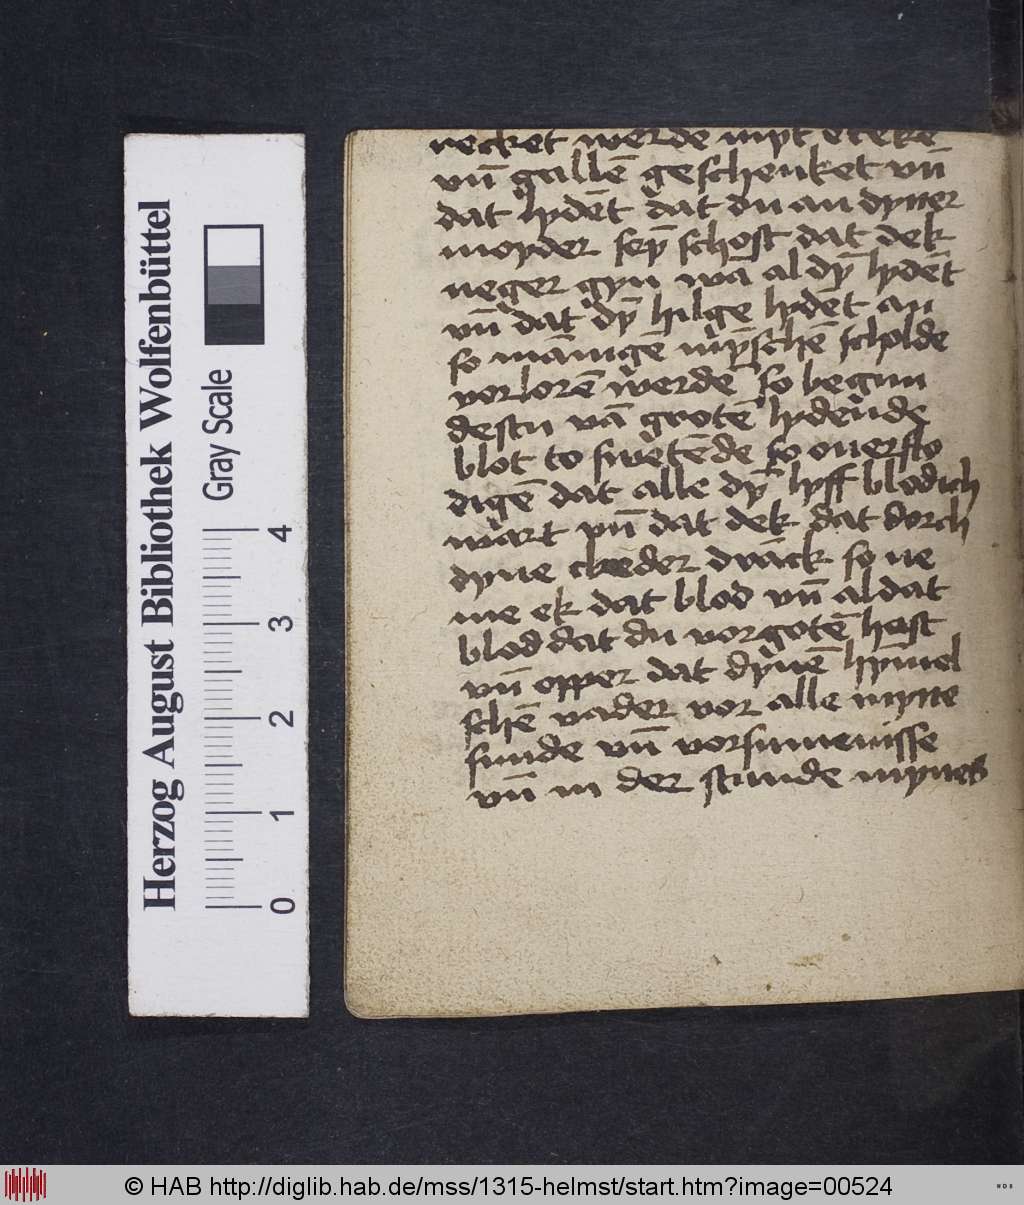 necket werde myt eteke
vn̄ gallē geschenket vn̄
dat lydēt dat du an dyner
moyder seȳ schost dat dek
neger gyn wā al dȳ lydēt
vn̄ dat dȳ hilge lydet an
so mānigē mȳschē scholde
vorlorē werdē so begun
destu vā grotē lydende
blot to swetēde so ouerflo
digē dat alle dȳ lyff blodich
wart vn̄ dat dek dat dorch
dyne cleder drāck so ne
me ek dat blod vn̄ al dat
blod dat du vorgotē hest
vn̄ opper dat dynē hȳmel
schē vader vor alle myne
sunde vn̄ vorsumenisse
vn̄ in der stunde mynes
Herzog August Bibliothek Wolfenbüttel
Gray Scale
0 1 2 3 4
© HAB http://diglib.hab.de/mss/1315-helmst/start.htm?image=00524